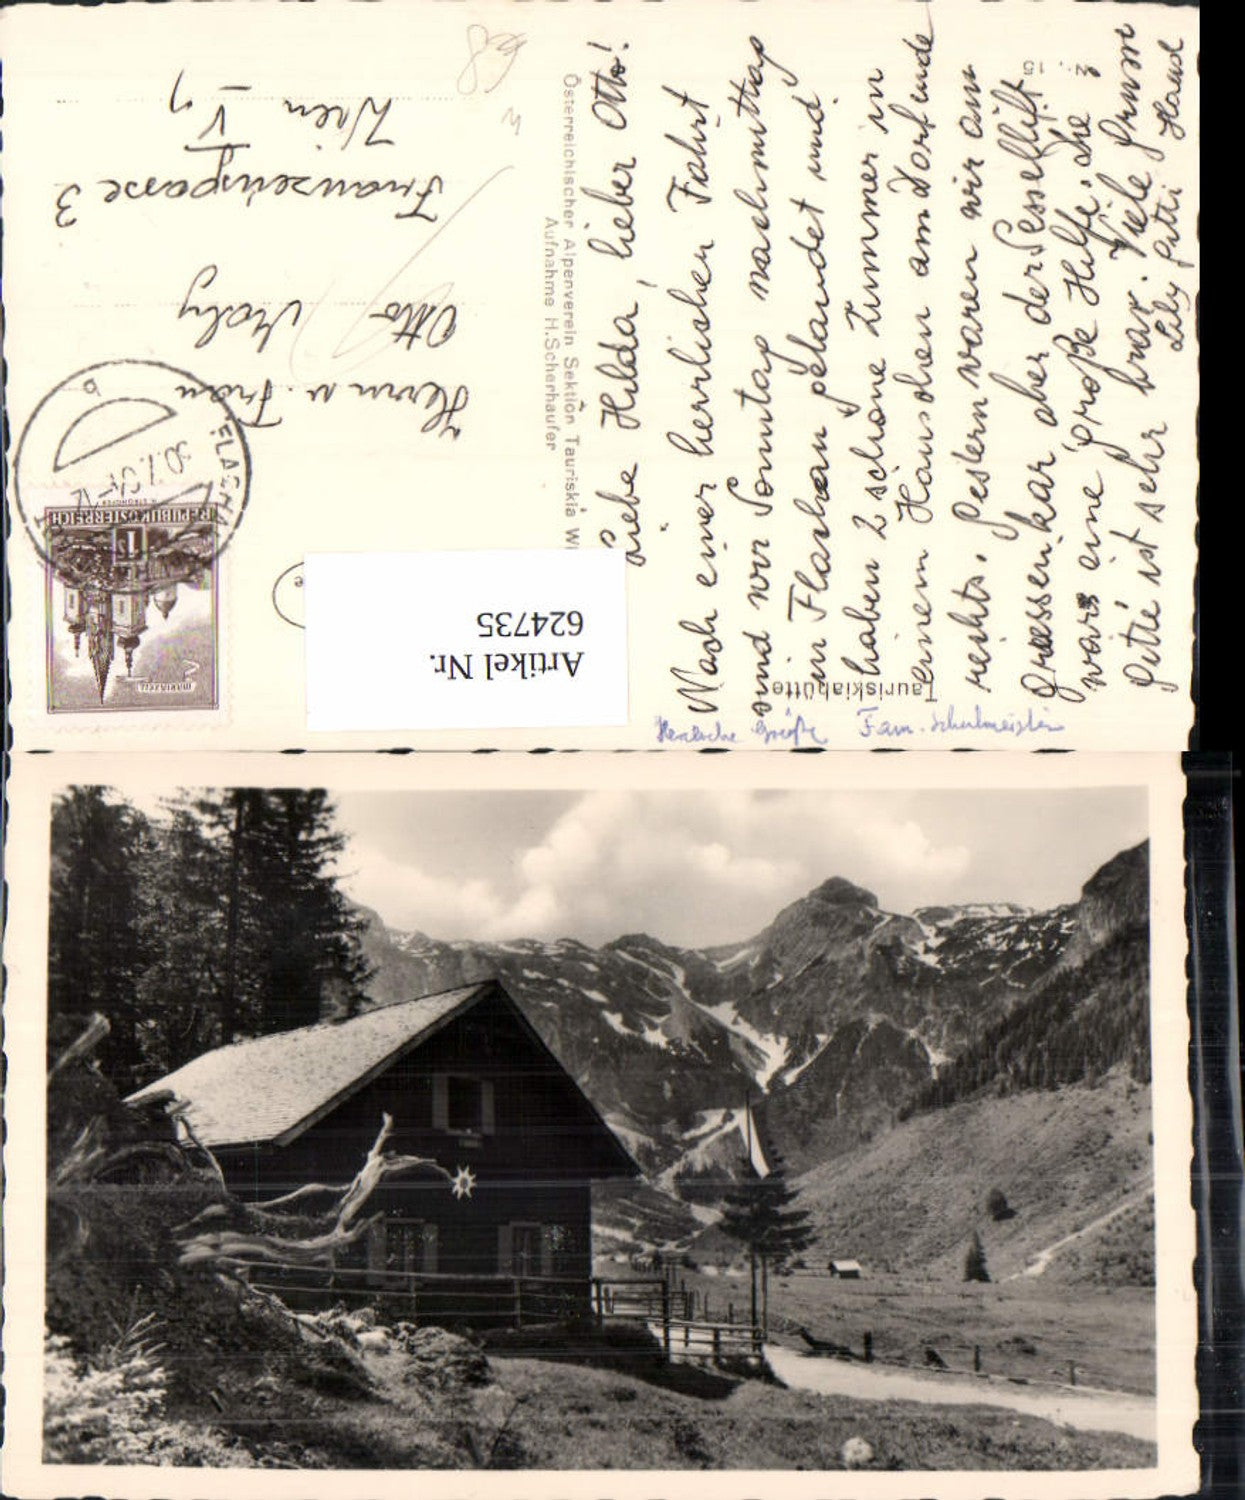 Liebe Hilda, lieber Otto!
Nach einer herrlichen Fahrt
sind wir Sonntag nachmittag
in Flachau gelandet und
haben 2 schöne Zimmer in
einem Häuschen am Dorfende
rechts. Gestern waren wir am
Griessenkar aber der Sessellift
war eine große Hilfe. Die
Gitti ist sehr brav. Viele
Lily Gitti
Fam. Schulmeister
Tauriskiahütte
Österreichischer Alpenverein Sektion Tauriskia Wi
Aufnahme H.Scherhaufer
Herrn u. Frau
Otto
Franzensgasse 3
Wien V
FLACHAU
REPUBLIK ÖSTERREICH
1
MARIAZELL
Artikel Nr.
624735